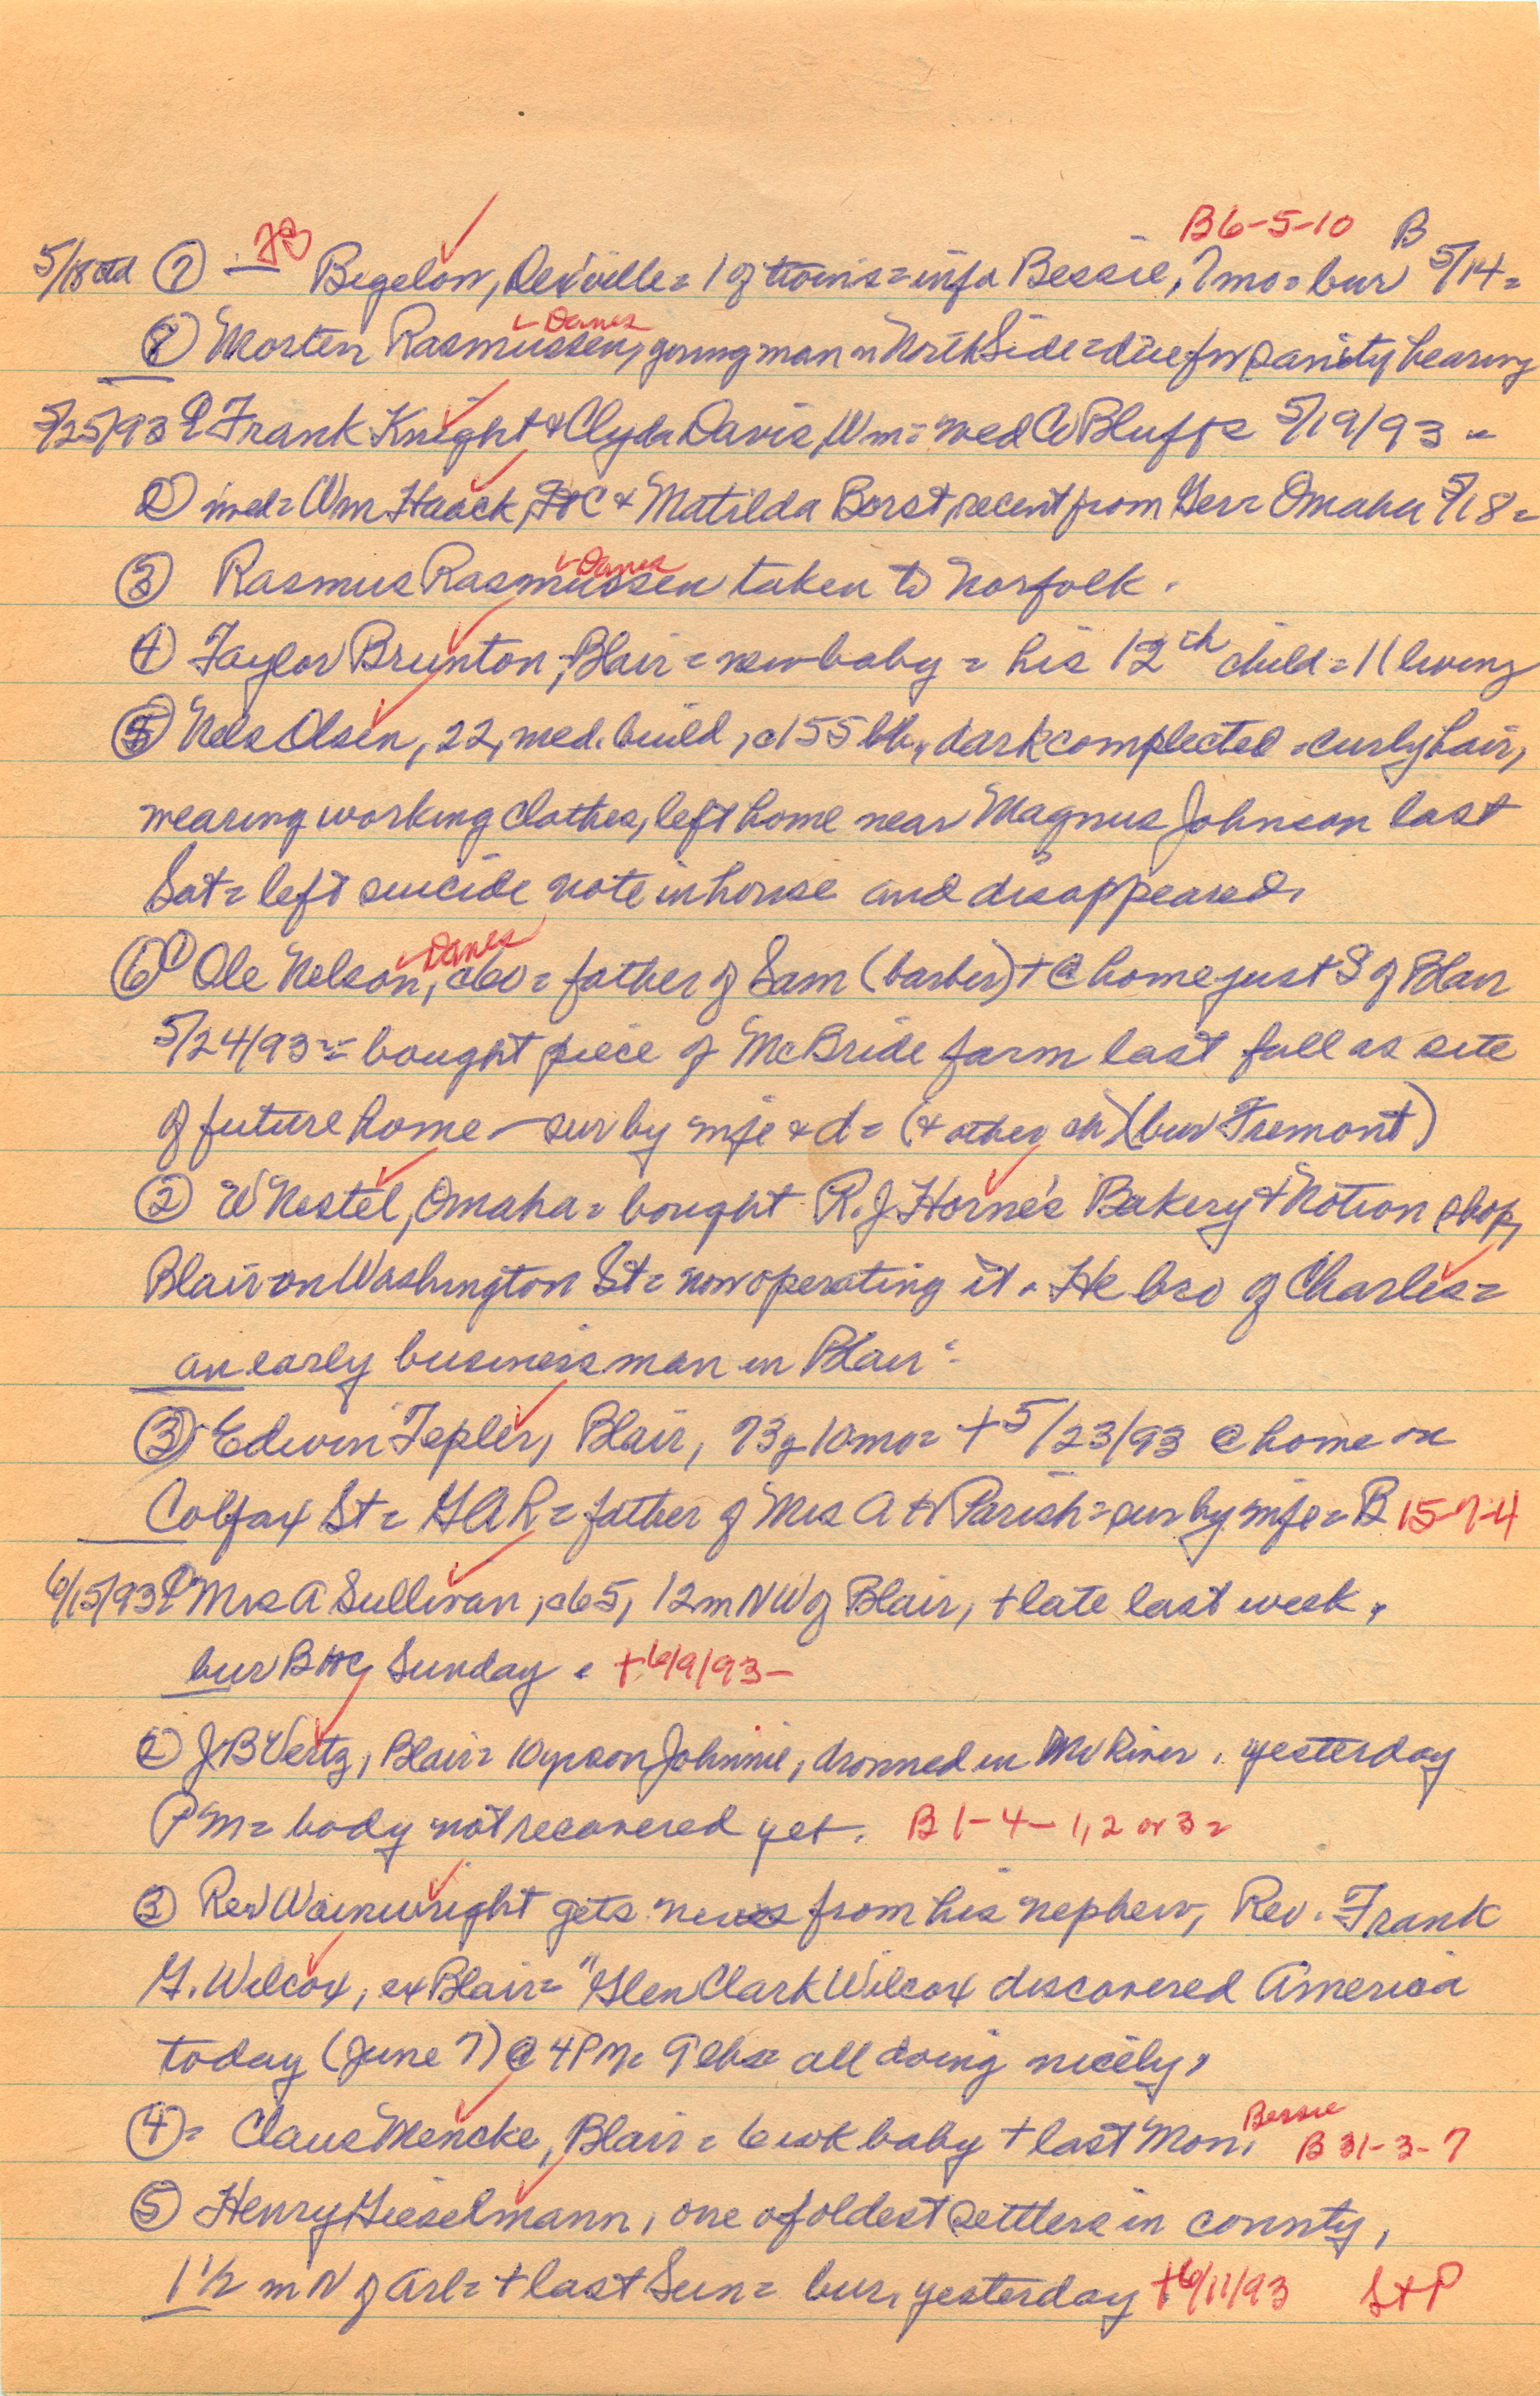 B6-5-10 B
5/18 ctd ⑦ — JB Bigelow, DeWville = 1 of twins = infa Bessie, 7mo = bur 5/14 =
Danes
⑧ Morten Rasmussen, young man n North Side = due for sanity hearing
5/25/93 ① Frank Knight & Clyda Davis, Wm = wed Co Bluffs 5/19/93 =
② wed = Wm Haack, FtC & Matilda Borst, recent from Ger = Omaha 5/18 =
Danes
③ Rasmus Rasmussen taken to Norfolk.
④ Taylor Brunton, Blair = new baby = his 12th child = 11 living
⑤ Nels Olsen, 22, med. build, c155 lb, dark complected = curly hair,
wearing working clothes, left home near Magnus Johnson last
Sat = left suicide note in house and disappeared.
Danes
⑥ ① Ole Nelson, c60 = father of Sam (barber) + @ home just S of Blair
5/24/93 = bought piece of McBride farm last fall as site
of future home — sur by wife & d = (& other ch) (bur Fremont)
② W Nestel, Omaha = bought R.J. Horne's Bakery & Notion shop,
Blair on Washington St = now operating it. He bro of Charles =
an early business man in Blair =
③ Edwin Tepler, Blair, 73y 10mo = + 5/23/93 @ home on
Colfax St = GAR = father of Mrs A H Parish = sur by wife = B 15-7-4
6/15/93 ① Mrs A Sullivan, c65, 12m NW of Blair, + late last week,
bur B Sunday. +6/9/93 —
② J B Vertz, Blair = 10yr son Johnnie, drowned in Mo River, yesterday
PM = body not recovered yet. B 1-4-1,2 or 3 =
③ Rev Wainwright gets news from his nephew, Rev. Frank
G. Wilcox, ex Blair = "Glen Clark Wilcox discovered America
today (June 7) @ 4PM = 9 lbs = all doing nicely,
Bessie
④ = Claus Mencke, Blair = 6 wk baby + last Mon. B 31-3-7
⑤ Henry Gieselmann, one of oldest settlers in county,
1 1/2 m N of Arl = + last Sun = bur, yesterday +6/11/93 St P